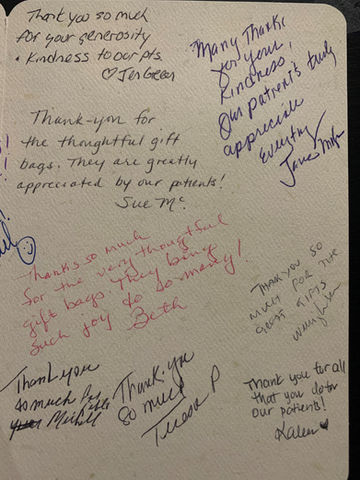 Thank you so much
for your generosity
+ Kindness to our pts.
♡ Jen Green
Many Thanks
for your
Kindness,
Our patients truly
appreciate
Everything
James
Thank-you for
the thoughtful gift
bags. They are greatly
appreciated by our patients!
Sue Mc.
Thanks so much
for the very thoughtful
gift bags. They bring
such joy to so many!
Beth
Thank you so
much for the
great gifts
Thank you
so much for
Michell
Thank you
so much
Teresa P
Thank you for all
that you do for
our patients!
Karen ♥